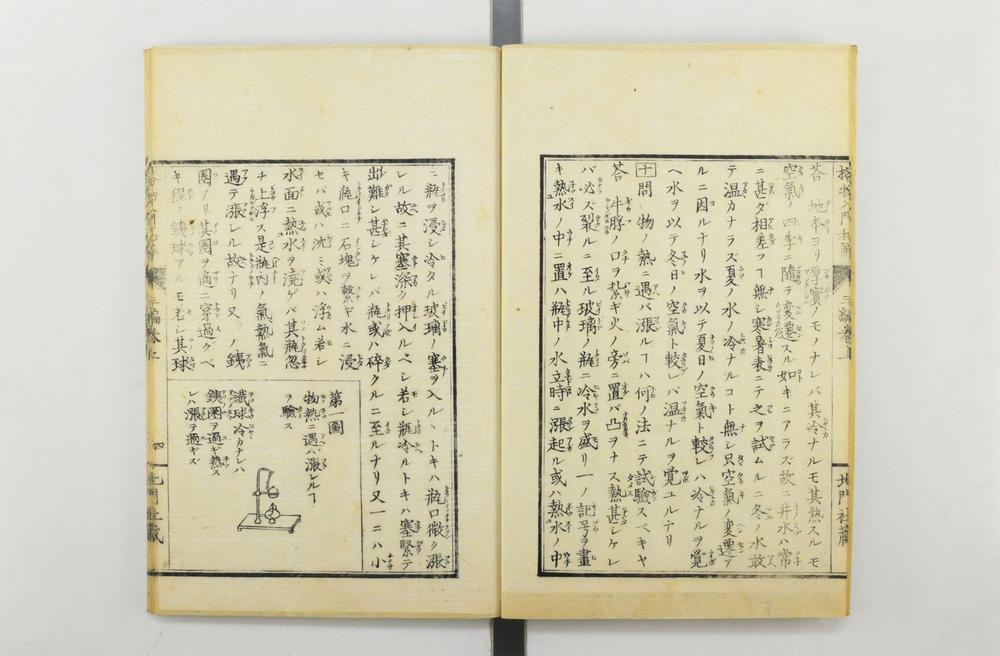 答 地本ヨリ厚實ノモノナレバ其冷ナルモ其熱スルモ
空氣ノ四季ニ隨テ變遷スル如キニアラズ故ニ井水ハ常
ニ甚ダ相差フヿ無シ寒暑表ニテ之ヲ試ムルニ冬ノ水敢
テ温カナラズ夏ノ水ノ冷ナルコト無シ只空氣ノ変遷ア
ルニ因ルナリ水ヲ以テ夏日ノ空氣ト較レハ冷ナルヲ覺
ヘ水ヲ以テ冬日ノ空氣ト較レバ温ナルヲ覺ユルナリ
十問 物ノ熱ニ遇ハ漲ルヿハ何ノ法ニテ試驗スベキヤ
答 牛脬ノ口ヲ紮ギ火ノ旁ニ置バ凸ヲナス熱甚シケレ
バ必ズ裂ルニ至ル玻璃ノ瓶ニ冷水ヲ盛リ一ノ記号ヲ畫
キ熱水ノ中ニ置ハ瓶中ノ水立時ニ漲起ル或ハ熱水ノ中
ニ瓶ヲ浸シ冷タル玻璃ノ塞ヲ入ルヽトキハ瓶口微ク漲
レル故ニ其塞深ク押入ルベシ若シ瓶冷ルトキハ塞緊テ
出難シ甚シケレバ瓶或ハ碎クルニ至ルナリ又一ニハ小
キ瓶口ニ石塊ヲ繋ギ水ニ浸
セバ或ハ沈ミ或ハ浮ム若シ
水面ニ熱水ヲ澆ゲバ其瓶忽
チ上浮ス是瓶内ノ氣熱氣ニ
遇テ漲レル故ナリ又一ノ銕
圈アリ其圈ヲ適ニ穿過グベ
キ程ノ銕球アルモ若シ其球
第一圖
物熱ニ遇バ漲レルヿ
ヲ驗ス
鐵球冷カナレハ
銕圈ヲ過ギ熱ス
レハ漲テ過ギズ
三編卷上
北門社蔵
四